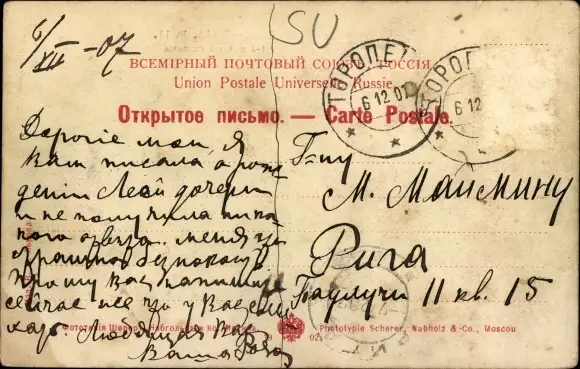 6/XII - 07
SU
ВСЕМІРНЫЙ ПОЧТОВЫЙ СОЮЗЪ. РОССІЯ.
Union Postale Universelle. Russie
Открытое письмо. — Carte Postale.
ТОРОПЕ
6 12 07
ТОРОП
6 12
Дорогіе мои, я
вам писала о рож
деніи дочери
и не получила ника
кого ответа. меня это
страшно безпокоит
прошу вас напишите
сейчас все что у вас слыш
но. Любящая Вас
Ваша Роза
Г=ну
М. Маимину
Рига
11 кв. 15
Фототипія Шереръ, Набгольцъ и Ко. Москва.
Phototypie Scherer, Nabholz & Co., Moscou